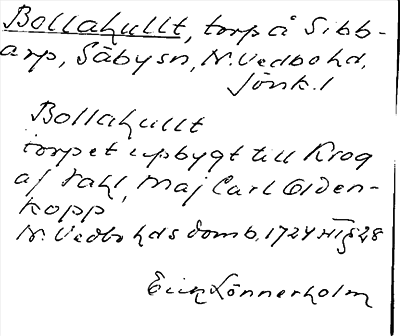 Bollahullt, torp å Sibb-
arp, Säbysn, N. Vedbohd,
Jönk. l
Bollahullt
torpet upbygt till Krog
af Vahl, Maj Carl Olden-
kopp
N. Vedbohds domb. 1724 HT § 28
Erik Lönnerholm